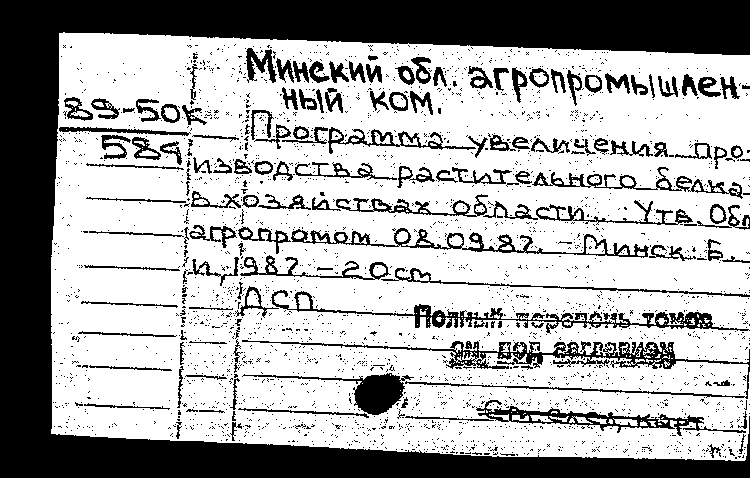 Минский обл. агропромышлен-
ный ком.
89-50к
584
Программа увеличения про-
изводства растительного белка
в хозяйствах области.. : Утв. Обл
агропромом 08.09.87. - Минск: Б.
и., 1987. - 20 см
ДСП
Полный перечень томов
см. под заглавием
См. след. карт